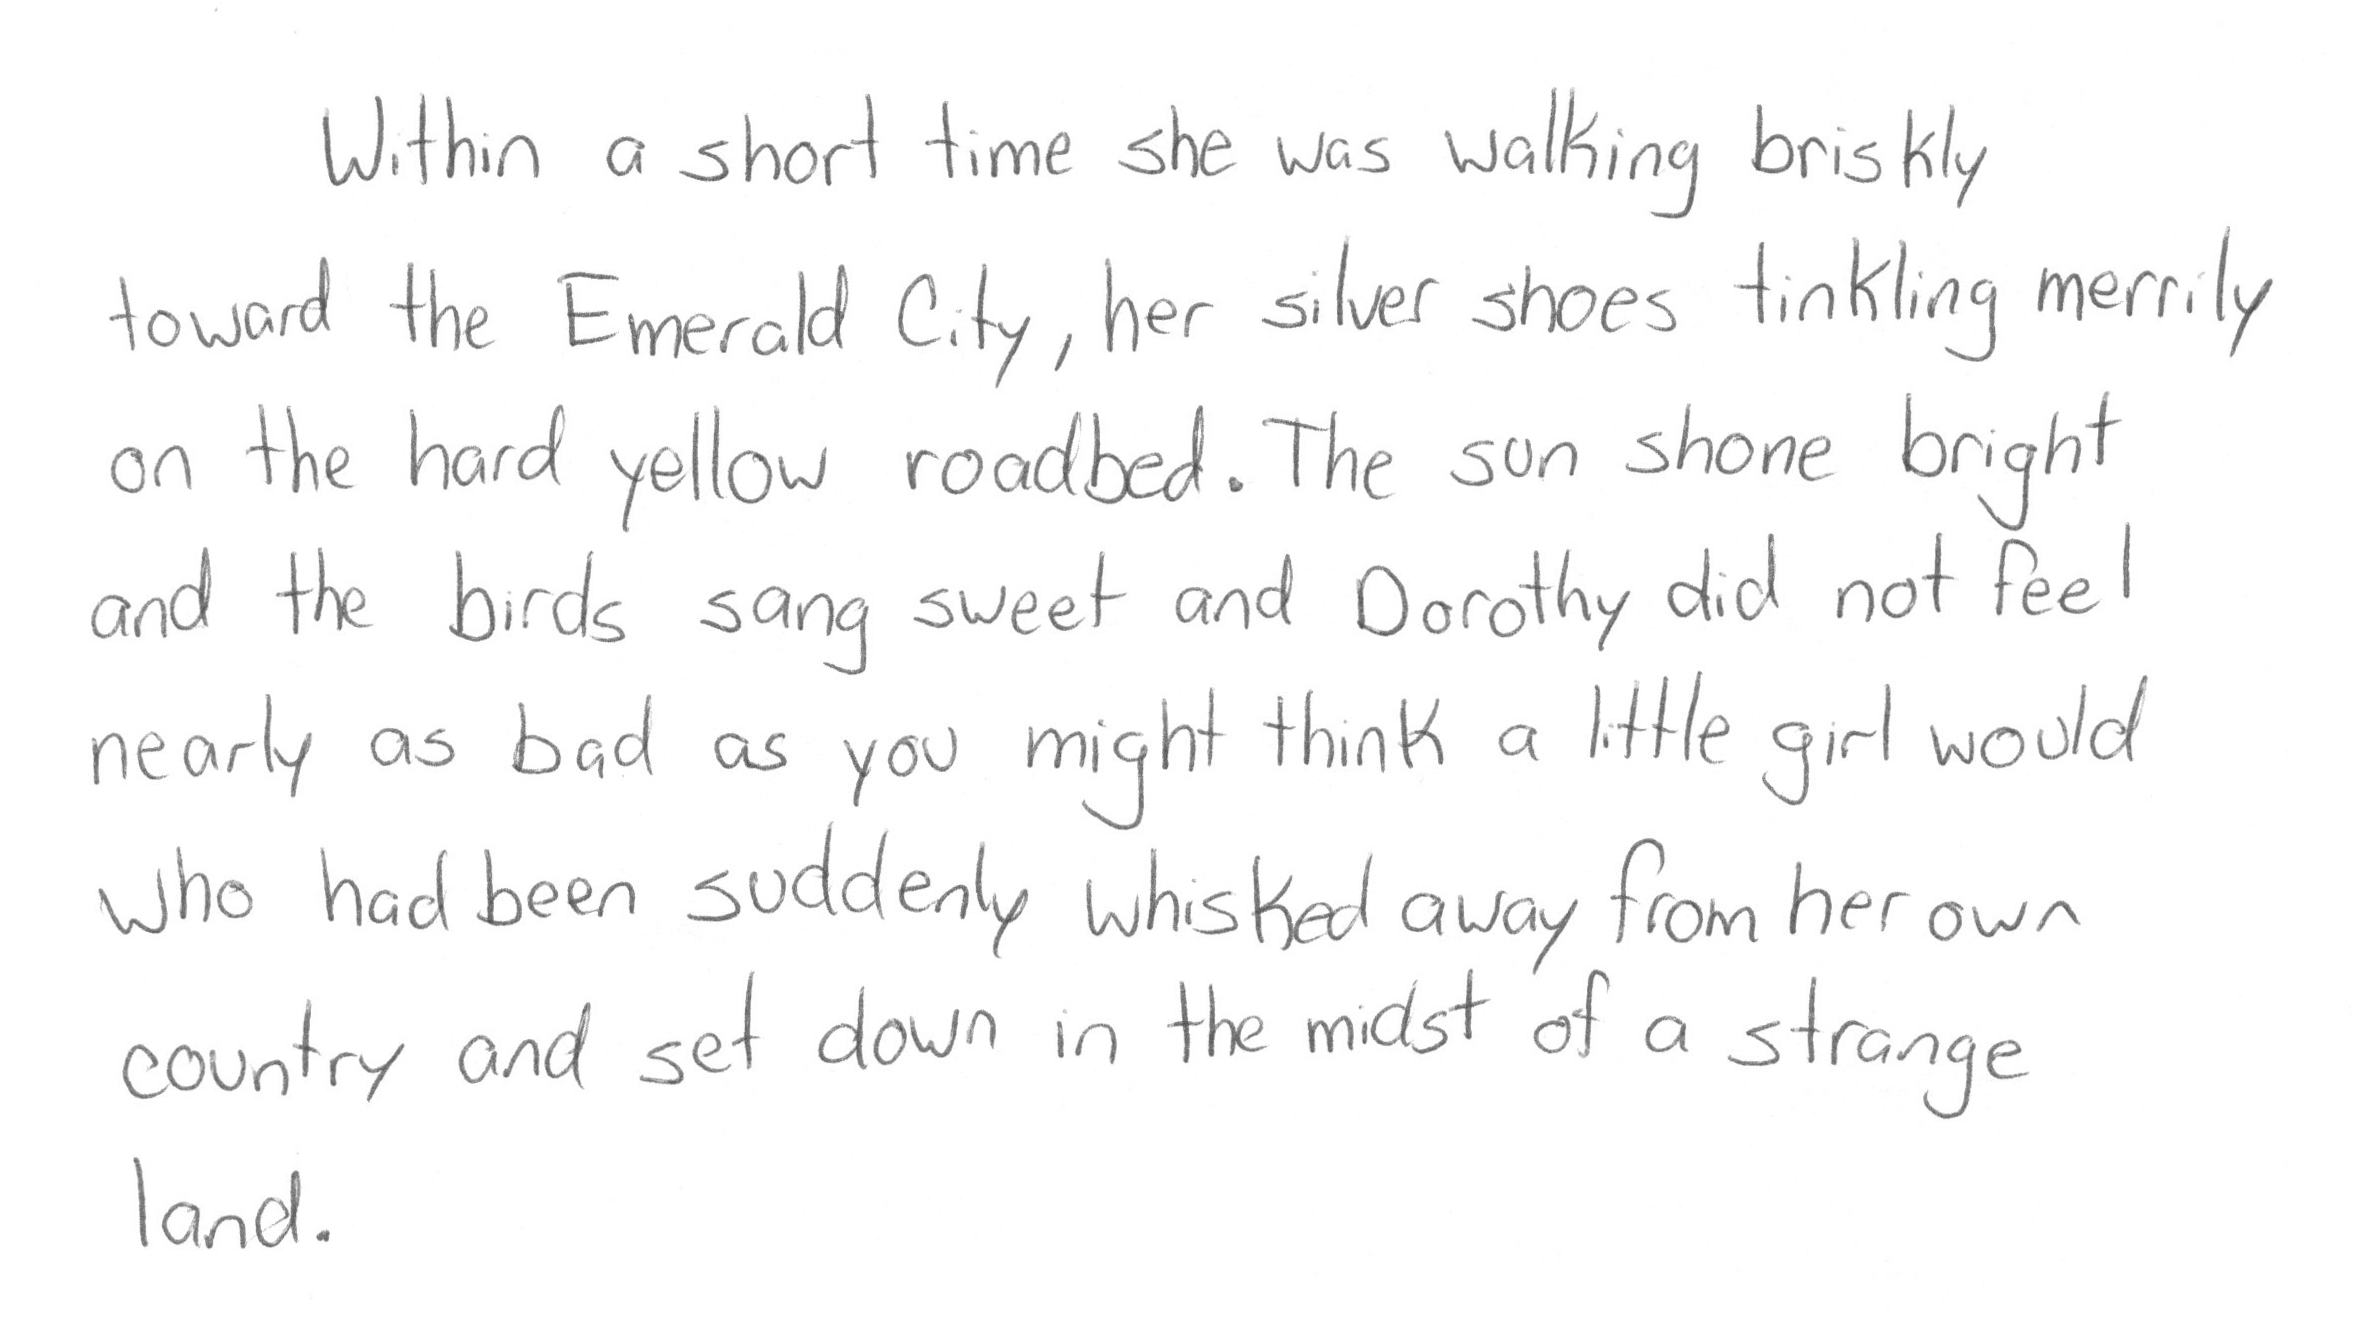 Within a short time she was walking briskly
toward the Emerald City, her silver shoes tinkling merrily
on the hard yellow roadbed. The sun shone bright
and the birds sang sweet and Dorothy did not feel
nearly as bad as you might think a little girl would
who had been suddenly whisked away from her own
country and set down in the midst of a strange
land.